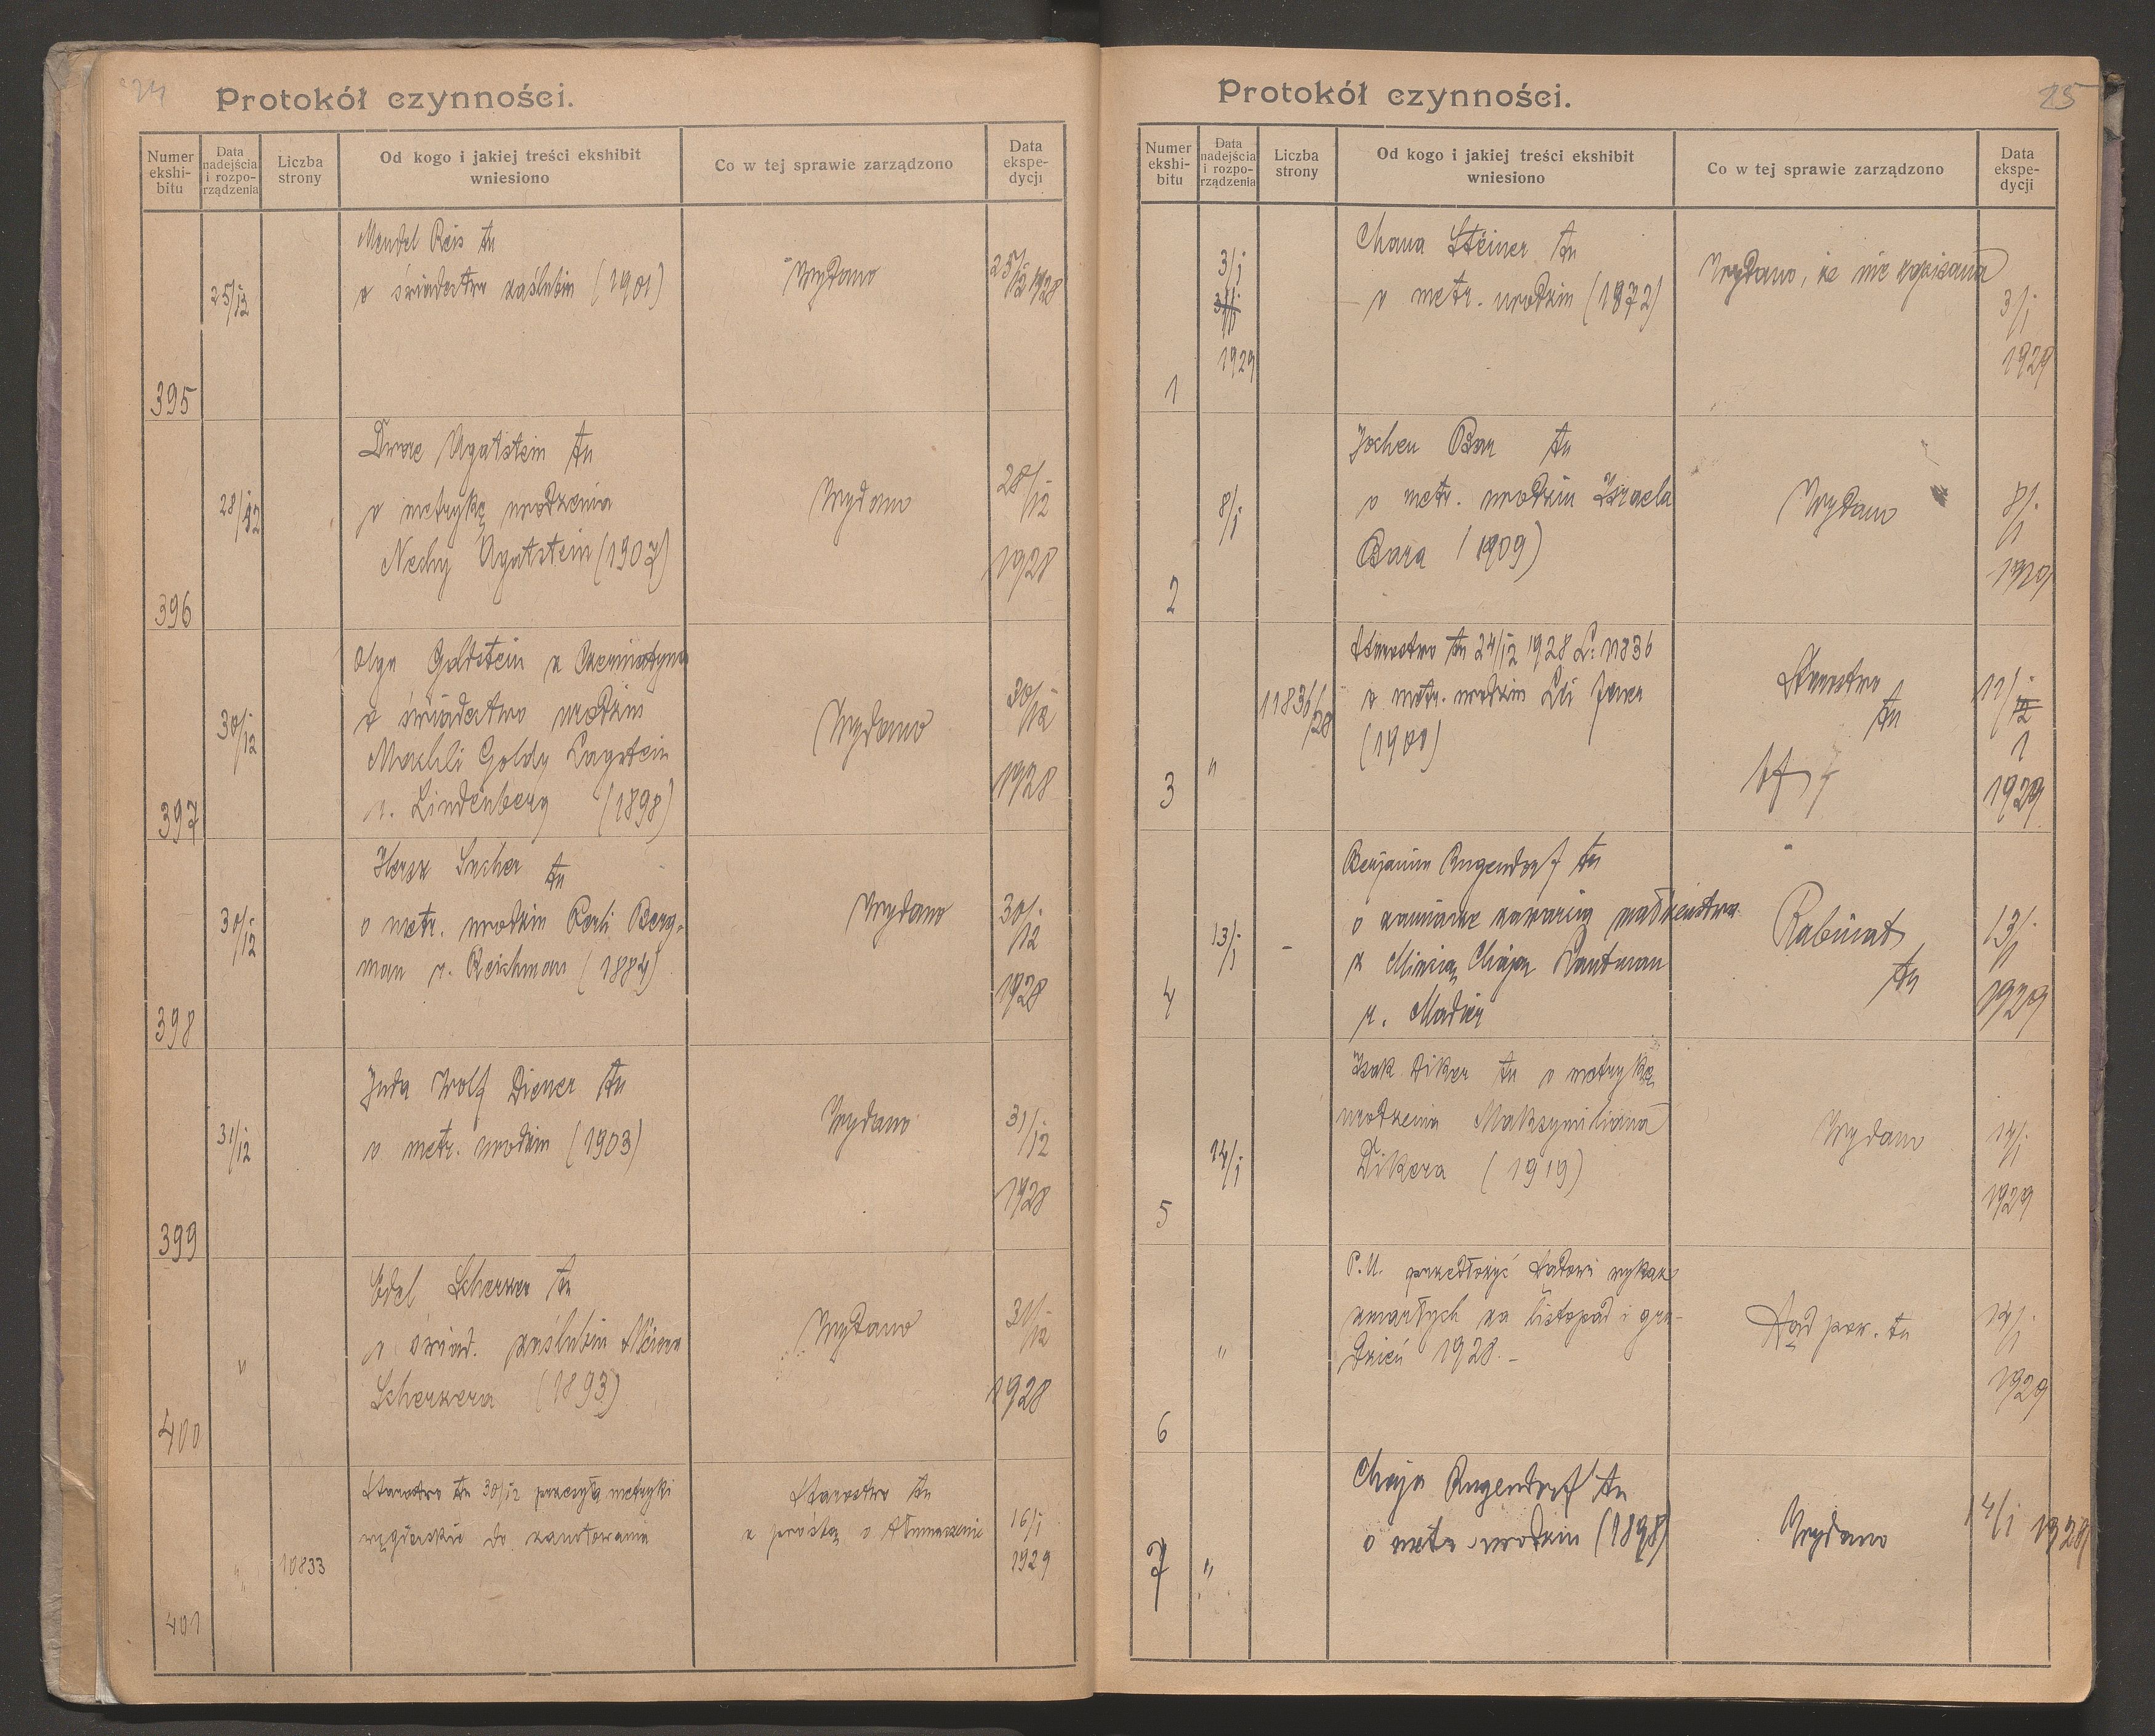 24
Protokół czynności.
Numer ekshi-bitu
Data nadejścia i rozpo-rządzenia
Liczba strony
Od kogo i jakiej treści ekshibit wniesiono
Co w tej sprawie zarządzono
Data ekspe-dycji
395
25/12
Mendel Reis tu
o świadectwo zaślubin (1901)
Wydano
25/12 1928
396
28/12
Agatstein tu
o metrykę urodzenia
Nechy Agatstein (1907)
Wydano
28/12
1928
397
30/12
Olga Goldstein z
o świadectwo urodzin
Goldy
r. Lindenberg (1898)
Wydano
30/12
1928
398
30/12
Hersz Sucher tu
o metr. urodzin Perli Berg-
man r. Reichman (1884)
Wydano
30/12
1928
399
31/12
Juda Wolf Diener tu
o metr. urodzin (1903)
Wydano
31/12
1928
400
"
Edel Scherzer tu
o świad. zaślubin
Scherzera (1893)
Wydano
31/12
1928
401
"
10833
Starostwo tu 30/12 przesyła metryki
węgierskie do zanotowania
Starostwo tu
z prośbą o tłumaczenie
16/1
1929
25
Protokół czynności.
Numer ekshi-bitu
Data nadejścia i rozpo-rządzenia
Liczba strony
Od kogo i jakiej treści ekshibit wniesiono
Co w tej sprawie zarządzono
Data ekspe-dycji
1
3/1
1929
Chana Steiner tu
o metr. urodzin (1872)
Wydano, że nie zapisana
3/1
1929
2
8/1
Jochen Bar tu
o metr. urodzin Izraela
Bara (1909)
Wydano
8/1
1929
3
"
11836/28
Starostwo tu 24/12 1928 L: 11836
o metr. urodzin
Starostwo
tu
1
1929
4
13/1
-
Benjamin Rugendorf tu
o zamiarze zawarcia małżeństwa
z Chają Dautman
r. Madier
Rabinat
tu
13/1
1929
5
14/1
Izak Diker tu o metrykę
urodzenia Maksymiliana
Dikera (1919)
Wydano
14/1
1929
6
"
P.U. przedłożyć Sądowi wykaz
zmarłych za listopad i gru-
dzień 1928.-
Sąd pow. tu
14/1
1929
7
"
Chaja Rugendorf tu
o metr. urodzin (1898)
Wydano
14/1